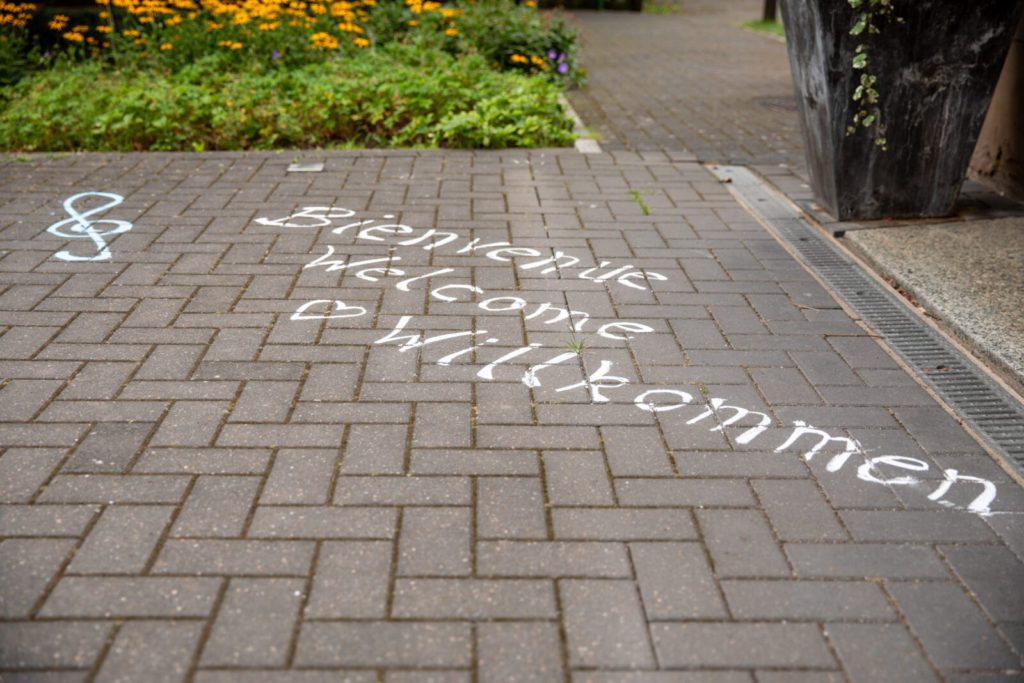 Bienvenue
Welcome
Willkommen